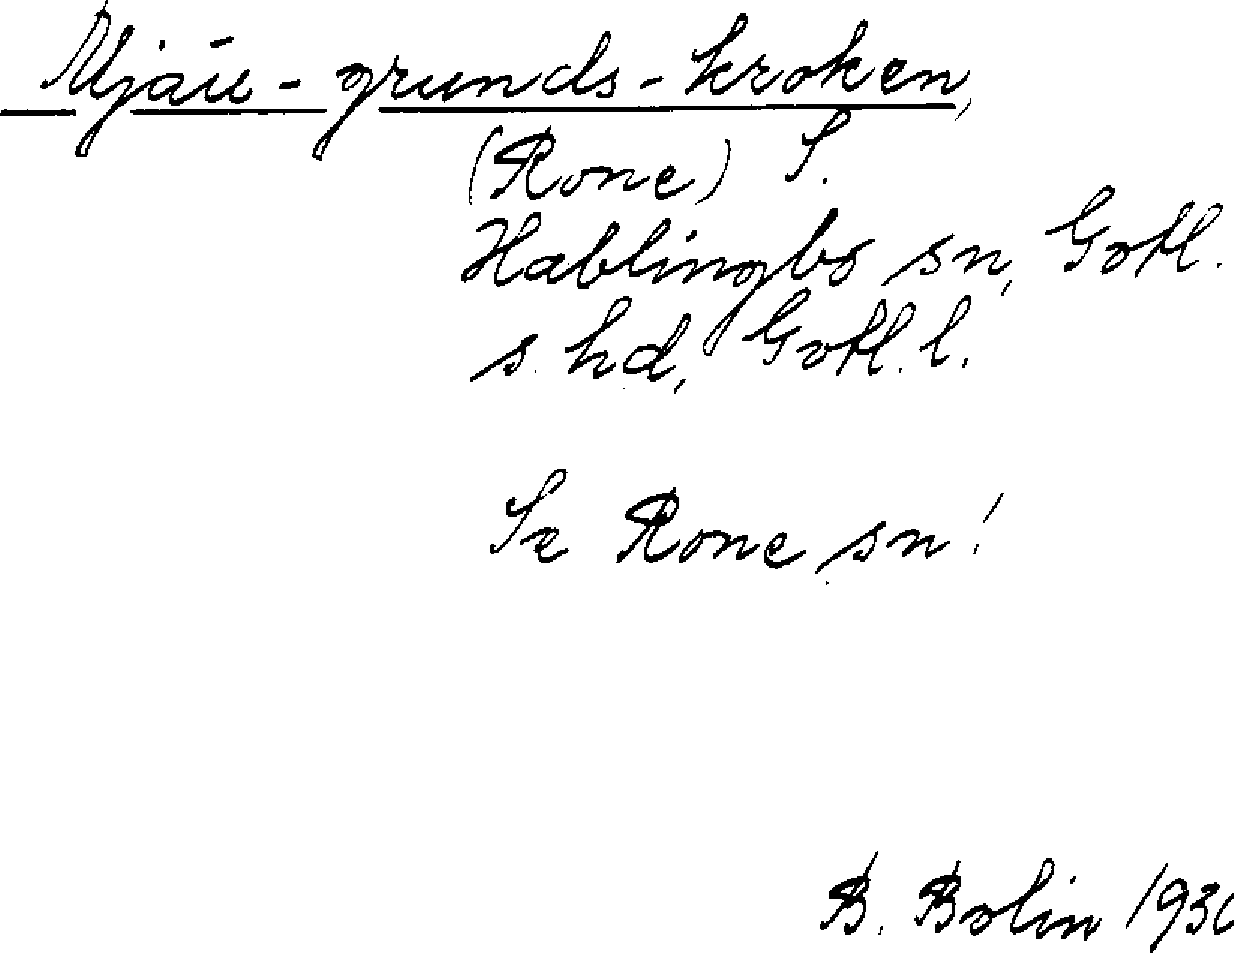 Mjau-grunds-kroken,
(Rone) S.
Hablingbo sn, Gotl.
s. hd, Gotl. l.
Se Rone sn!
B. Bolin 1930